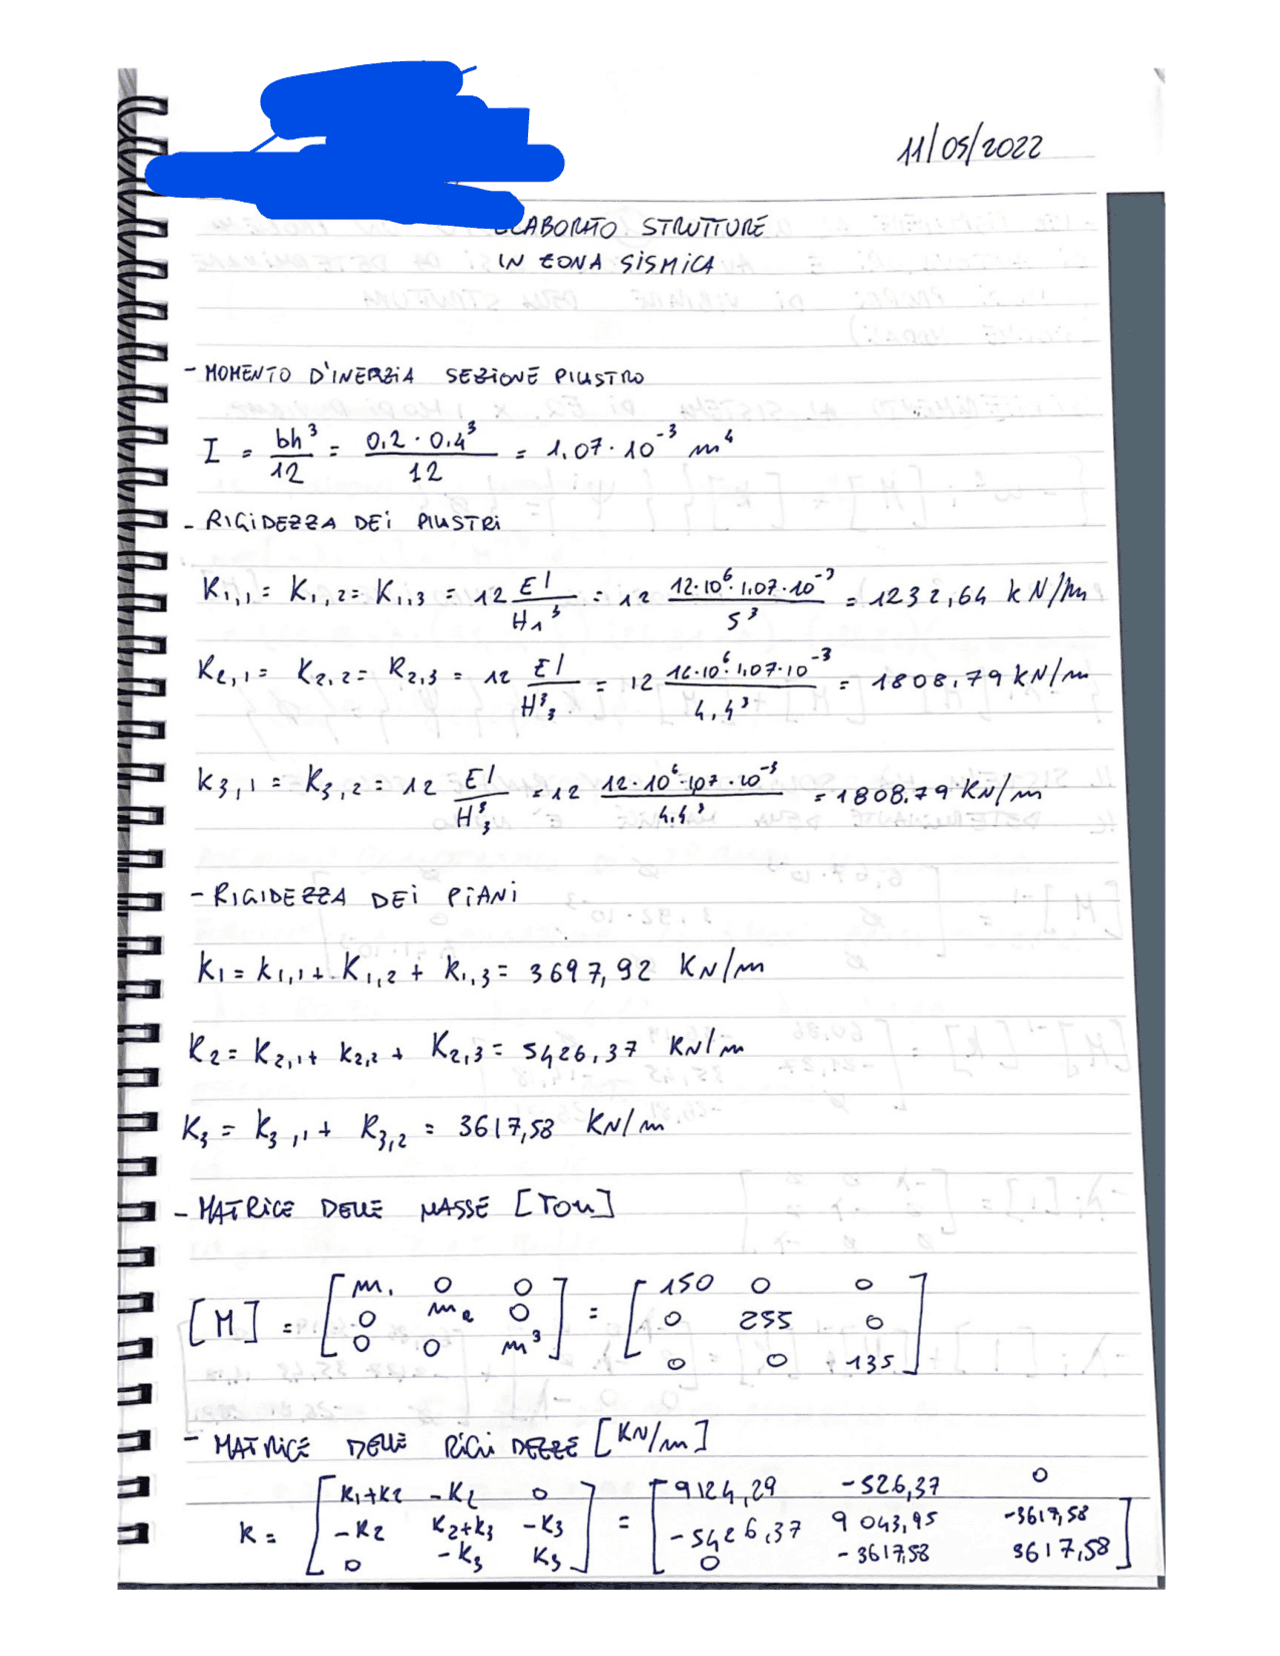 11/05/2022
ELABORATO STRUTTURE
IN ZONA SISMICA
- MOMENTO D'INERZIA SEZIONE PILASTRO
I = bh³/12 = 0.2 · 0.4³/12 = 1.07 · 10⁻³ m⁴
- RIGIDEZZA DEI PILASTRI
K1,1 = K1,2 = K1,3 = 12 EI/H1³ = 12 12·10⁶·1.07·10⁻³/5³ = 1232,64 kN/m
K2,1 = K2,2 = K2,3 = 12 EI/H³3 = 12 12·10⁶·1,07·10⁻³/4,4³ = 1808,79 KN/m
K3,1 = K3,2 = 12 EI/H³3 = 12 12·10⁶·1,07·10⁻³/4,4³ = 1808.79 KN/m
- RIGIDEZZA DEI PIANI
K1 = K1,1 + K1,2 + K1,3 = 3697,92 KN/m
K2 = K2,1 + K2,2 + K2,3 = 5426,37 KN/m
K3 = K3,1 + K3,2 = 3617,58 KN/m
- MATRICE DELLE MASSE [Ton]
[M] = [m1 0 0 / 0 m2 0 / 0 0 m3] = [150 0 0 / 0 255 0 / 0 0 135]
- MATRICE DELLE RIGIDEZZE [KN/m]
K = [K1+K2 -K2 0 / -K2 K2+K3 -K3 / 0 -K3 K3] = [9124,29 -526,37 0 / -5426,37 9043,95 -3617,58 / 0 -3617,58 3617,58]